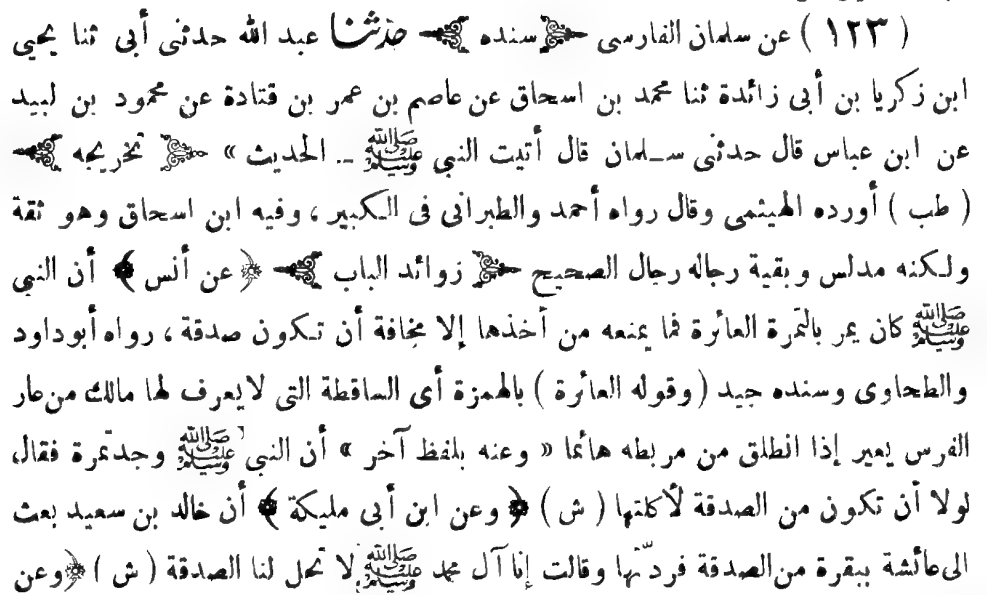 ( ١٢٣ ) عن سلمان الفارسى ﴿ سنده ﴾ حدثنا عبد الله حدثنى أبى ثنا يحيى
ابن زكريا بن أبى زائدة ثنا محمد بن اسحاق عن عاصم بن عمر بن قتادة عن محمود بن لبيد
عن ابن عباس قال حدثنى سلمان قال أتيت النبى ﷺ .. الحديث » ﴿ تخريجه ﴾
( طب ) أورده الهيثمى وقال رواه أحمد والطبرانى فى الكبير ، وفيه ابن اسحاق وهو ثقة
ولكنه مدلس وبقية رجاله رجال الصحيح ﴿ زوائد الباب ﴾ ﴿ عن أنس ﴾ أن النبى
ﷺ كان يمر بالتمرة العائرة فما يمنعه من أخذها إلا مخافة أن تكون صدقة ، رواه أبوداود
والطحاوى وسنده جيد ( وقوله العائرة ) بالهمزة أى الساقطة التى لايعرف لها مالك من عار
الفرس يعير إذا انطلق من مربطه هائما « وعنه بلفظ آخر » أن النبى ﷺ وجدتمرة فقال
لولا أن تكون من الصدقة لأكلتها ( ش ) ﴿ وعن ابن أبى مليكة ﴾ أن خالد بن سعيد بعث
الى عائشة ببقرة من الصدقة فردّتها وقالت إنا آل محمد ﷺ لا تحل لنا الصدقة ( ش ) ﴿ وعن